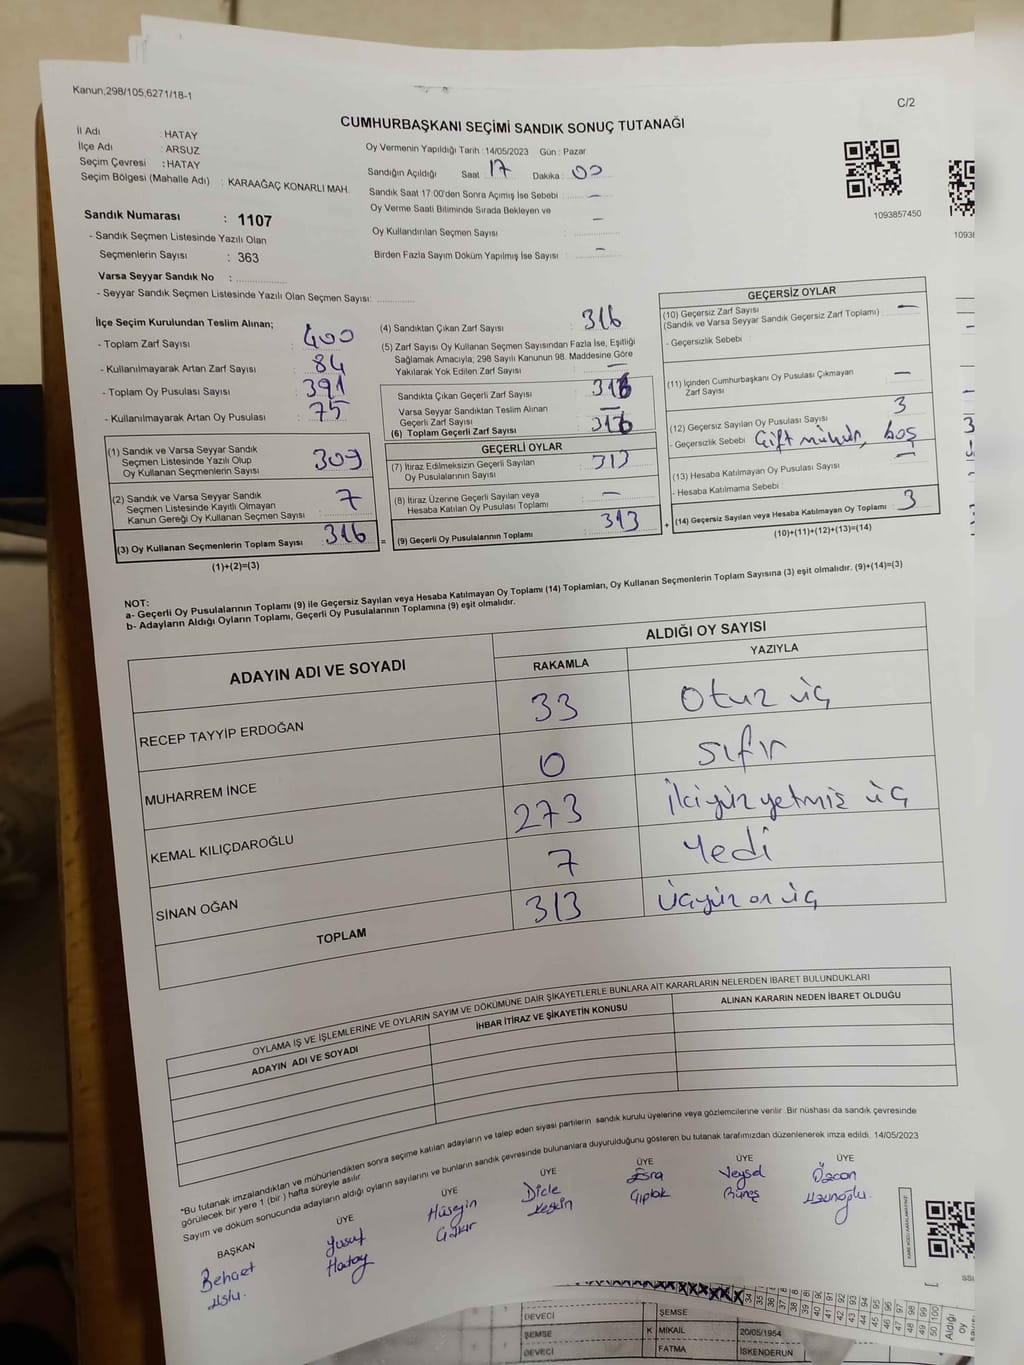 Kanun,298/105,6271/18-1
C/2
CUMHURBAŞKANI SEÇİMİ SANDIK SONUÇ TUTANAĞI
İl Adı : HATAY
İlçe Adı : ARSUZ
Seçim Çevresi : HATAY
Seçim Bölgesi (Mahalle Adı) : KARAAĞAÇ KONARLI MAH.
Oy Vermenin Yapıldığı Tarih : 14/05/2023 Gün : Pazar
Sandığın Açıldığı Saat 17 Dakika : 00
Sandık Saat 17:00'den Sonra Açımış İse Sebebi : –
Oy Verme Saati Bitiminde Sırada Bekleyen ve
Oy Kullandırılan Seçmen Sayısı : –
Birden Fazla Sayım Döküm Yapılmış İse Sayısı : –
1093857450
Sandık Numarası : 1107
- Sandık Seçmen Listesinde Yazılı Olan
Seçmenlerin Sayısı : 363
Varsa Seyyar Sandık No :
- Seyyar Sandık Seçmen Listesinde Yazılı Olan Seçmen Sayısı:
İlçe Seçim Kurulundan Teslim Alınan;
- Toplam Zarf Sayısı : 400
- Kullanılmayarak Artan Zarf Sayısı : 84
- Toplam Oy Pusulası Sayısı : 391
- Kullanılmayarak Artan Oy Pusulası : 75
(1) Sandık ve Varsa Seyyar Sandık
Seçmen Listesinde Yazılı Olup
Oy Kullanan Seçmenlerin Sayısı 309
(2) Sandık ve Varsa Seyyar Sandık
Seçmen Listesinde Kayıtlı Olmayan
Kanun Gereği Oy Kullanan Seçmen Sayısı : 7
(3) Oy Kullanan Seçmenlerin Toplam Sayısı : 316
(1)+(2)=(3)
=
(4) Sandıktan Çıkan Zarf Sayısı : 316
(5) Zarf Sayısı Oy Kullanan Seçmen Sayısından Fazla İse, Eşitliği
Sağlamak Amacıyla; 298 Sayılı Kanunun 98. Maddesine Göre
Yakılarak Yok Edilen Zarf Sayısı : –
Sandıkta Çıkan Geçerli Zarf Sayısı : 316
Varsa Seyyar Sandıktan Teslim Alınan
Geçerli Zarf Sayısı : –
(6) Toplam Geçerli Zarf Sayısı : 316
GEÇERLİ OYLAR
(7) İtiraz Edilmeksizin Geçerli Sayılan
Oy Pusulalarının Sayısı : 313
(8) İtiraz Üzerine Geçerli Sayılan veya
Hesaba Katılan Oy Pusulası Toplamı : –
(9) Geçerli Oy Pusulalarının Toplamı : 313
+
GEÇERSİZ OYLAR
(10) Geçersiz Zarf Sayısı
(Sandık ve Varsa Seyyar Sandık Geçersiz Zarf Toplamı) : –
- Geçersizlik Sebebi :
(11) İçinden Cumhurbaşkanı Oy Pusulası Çıkmayan
Zarf Sayısı : –
(12) Geçersiz Sayılan Oy Pusulası Sayısı : 3
- Geçersizlik Sebebi Çift mühür, boş
(13) Hesaba Katılmayan Oy Pusulası Sayısı : –
- Hesaba Katılmama Sebebi :
(14) Geçersiz Sayılan veya Hesaba Katılmayan Oy Toplamı : 3
(10)+(11)+(12)+(13)=(14)
NOT:
a- Geçerli Oy Pusulalarının Toplamı (9) ile Geçersiz Sayılan veya Hesaba Katılmayan Oy Toplamı (14) Toplamları, Oy Kullanan Seçmenlerin Toplam Sayısına (3) eşit olmalıdır. (9)+(14)=(3)
b- Adayların Aldığı Oyların Toplamı, Geçerli Oy Pusulalarının Toplamına (9) eşit olmalıdır.
ADAYIN ADI VE SOYADI ALDIĞI OY SAYISI
RAKAMLA YAZIYLA
RECEP TAYYİP ERDOĞAN 33 Otuz üç
MUHARREM İNCE 0 sıfır
KEMAL KILIÇDAROĞLU 273 ikiyüz yetmiş üç
SİNAN OĞAN 7 Yedi
TOPLAM 313 Üçyüz on üç
OYLAMA İŞ VE İŞLEMLERİNE VE OYLARIN SAYIM VE DÖKÜMÜNE DAİR ŞİKAYETLERLE BUNLARA AİT KARARLARIN NELERDEN İBARET BULUNDUKLARI
ADAYIN ADI VE SOYADI İHBAR İTİRAZ VE ŞİKAYETİN KONUSU ALINAN KARARIN NEDEN İBARET OLDUĞU
*Bu tutanak imzalandıktan ve mühürlendikten sonra seçime katılan adayların ve talep eden siyasi partilerin sandık kurulu üyelerine veya gözlemcilerine verilir .Bir nüshası da sandık çevresinde
görülecek bir yere 1 (bir) hafta süreyle asılır.
Sayım ve döküm sonucunda adayların aldığı oyların sayılarını ve bunların sandık çevresinde bulunanlara duyurulduğunu gösteren bu tutanak tarafımızdan düzenlenerek imza edildi. 14/05/2023
BAŞKAN ÜYE ÜYE ÜYE ÜYE ÜYE ÜYE
Behçet Uslu.
Yusuf Hatay
Hüseyin Çakır
Dicle Keskin
Esra Çıplak
Veysel Güneş
Özcan Uzunoğlu.
DEVECİ ŞEMSE
ŞEMSE K MİKAİL 20/05/1954
DEVECİ FATMA İSKENDERUN
Aldığı
oy